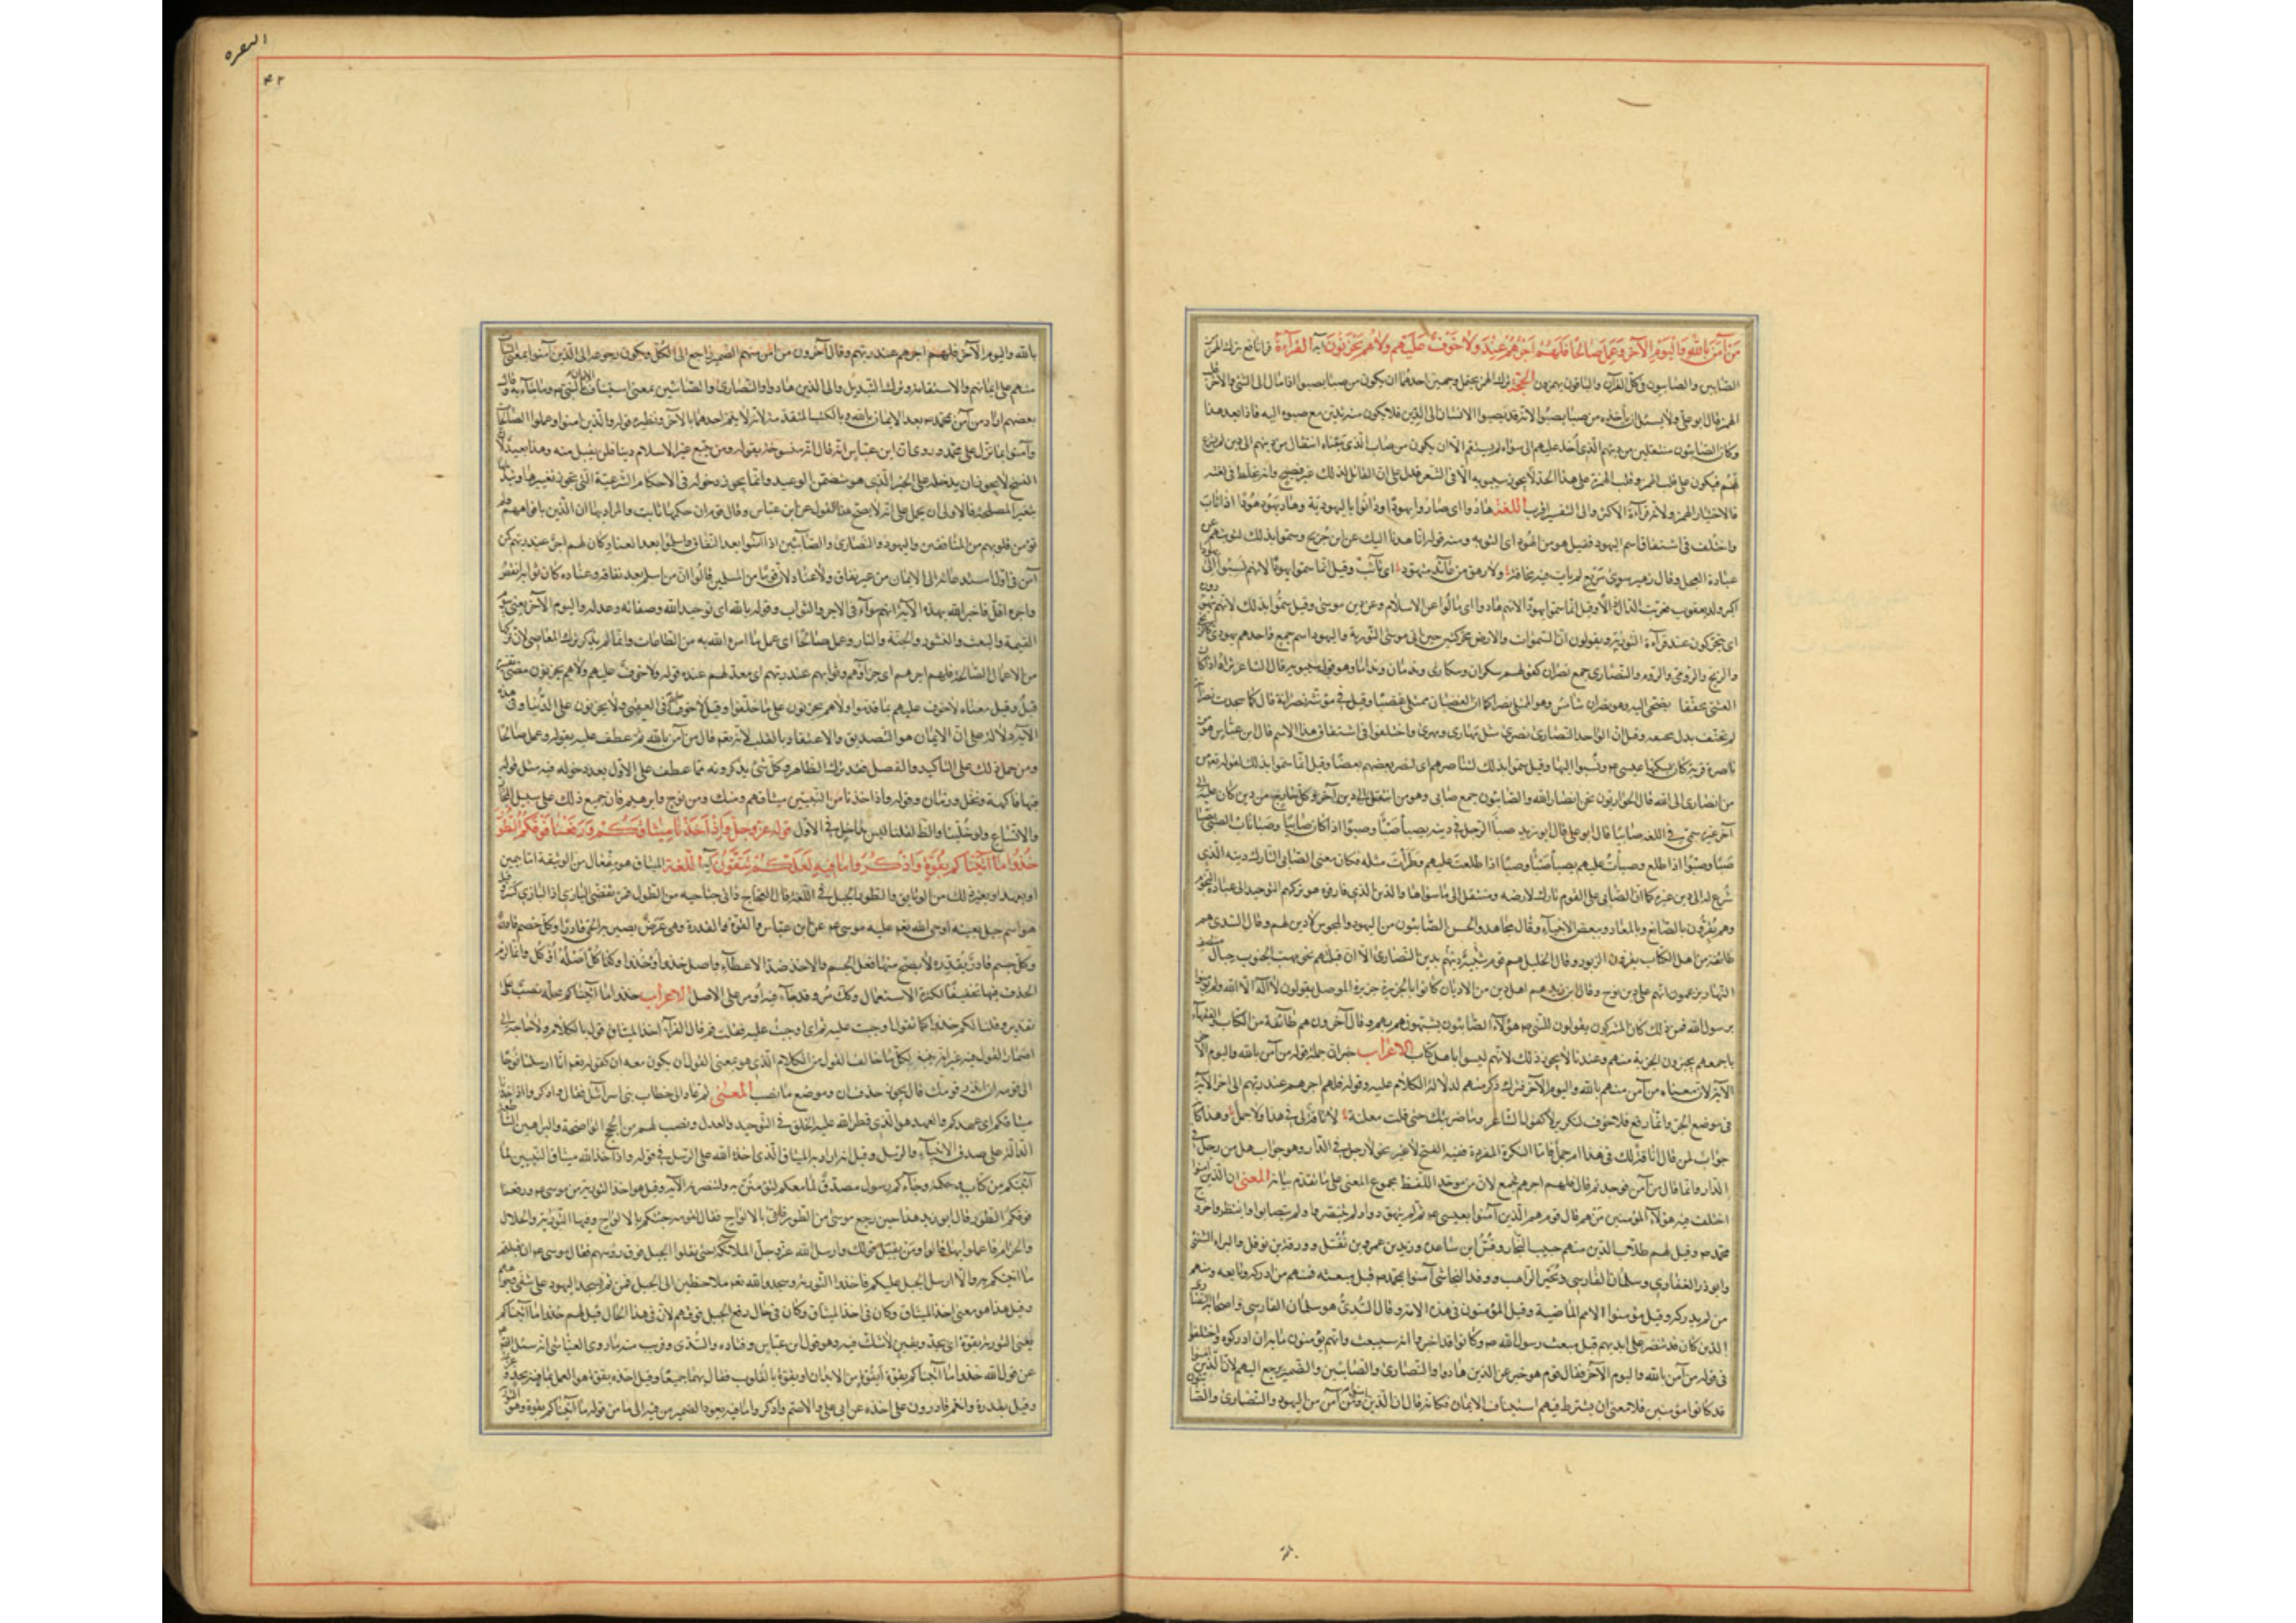 من آمن بالله واليوم الآخر وعمل صالحا فلهم اجرهم عند ولا خوف عليهم ولا هم يحزنون آية القراءة قرأ نافع بترك الهمز
الصابين والصابون وكل القرآن والباقون يهمزون الحجة ترك الهمز يحتمل وجهين احدهما ان يكون من صبا يصبوا اذا مال الى الشئ والآخر
الهمز قال ابو علي ولا يسهل ان يأخذه من صبا يصبوا لانه قد يصبوا الانسان الى الدين فلا يكون منه تدين مع صبوه اليه فاذا بعد هذا
وكان الصابئون منتقلين من دينهم الذي اخذ عليهم الى سواه لم يستقم الا ان يكون من صبأت الذي معناه انتقال من دينهم الى دين لم يشرع
لهم فيكون على قلب الهمزة وقلب الهمزة على هذا الحد لا يجوزه سيبويه الا في الشعر فدل على ان القائل لذلك غير فصيح وانه غلط في لغته
فالاختيار الهمز ولانه قراءة الاكثر والى التفسير اقرب اللغة هادوا اى صاروا يهودا او دانوا باليهودية وهاد يهود هودا اذا تاب
واختلف في اشتقاق اسم اليهود فقيل هو من الهود اى التوبه ومنه قوله انا هدنا اليك عن ابن جريج وسموا بذلك لتوبتهم عن
عبادة العجل وقال زهير سوى مربع لم يات فيه مخافة ولا رهق من عائذ متهود اى تائب وقيل انما سموا يهودا لانهم نسبوا الى يهودا
اكبر ولد يعقوب فعربت الذال دالا وقيل انما سموا يهودا لانهم هادوا اى مالوا عن الاسلام وعن دين موسى وقيل سموا بذلك لانهم يتهودون
اى يتحركون عند قراءة التورية ويقولون ان السموات والارض تحركت حين اتى موسى التورية واليهود اسم جمع واحدهم يهودي كالزنجي
والزنج والرومي والروم والنصارى جمع نصران كقولهم سكران وسكارى وندمان وندامى وهو قول سيبويه قال الشاعر تراه اذا كان
العشى محنفا يضحى لديه وهو نصران شامس وهو الممتلى نصرا كما ان الغضبان ممتلى غضبا وقيل في مؤنثه نصرانة قال كما سجدت نصرانة
لم تحنف يدل بجمعه وقيل ان الواحد النصارى نصرى مثل مهارى ومهرى واختلفوا في اشتقاق هذا الاسم قال ابن عباس هو من
ناصرة قرية كان يسكنها عيسى ع ونسبوا اليها وقيل سموا بذلك لتناصرهم اى لنصر بعضهم بعضا وقيل انما سموا بذلك لقوله تعالى من
من انصارى الى الله قال الحواريون نحن انصار الله والصابئون جمع صابى وهو من انتقل الى دين آخر وكل خارج من دين كان عليه الى
آخر غيره سمى في اللغه صابئا قال ابو علي قال ابو زيد صبأ الرجل في دينه يصبأ صبئا وصبوا اذا كان صابئا وصبأ ناب الصبى يصبأ
صبا وصبوا اذا طلع وصبأت عليهم يصبأ صبئا وصبئا اذا طلعت عليهم وطرأت مثله فكان معنى الصابى التارك دينه الذي
شرع له الى دين غيره كما ان الصابى على القوم تارك لارضه ومنتقل الى ما سواها والدين الذي فارقوه هو تركهم التوحيد الى عبادة النجوم
وهم يقرون بالصانع وبالمعاد وببعض الانبياء وقال مجاهد والحسن الصابئون من اليهود والمجوس لا دين لهم وقال السدي هم
طائفة من اهل الكتاب يقرؤن الزبور وقال الخليل هم قوم شبيه دينهم بدين النصارى الا ان قبلتهم نحو مهب الجنوب حيال منتصف
النهار ويزعمون انهم على دين نوح وقال ابن زيد هم اهل دين من الاديان كانوا بالجزيرة جزيرة الموصل يقولون لا اله الا الله ولم يؤمنوا
برسول الله فمن ذلك كان المشركون يقولون للنبى ص هؤلاء الصابئون يشبهونهم بهم وقال آخرون هم طائفة من الكتاب والفقهاء
باجمعهم يجيزون الجزية منهم وعندنا لا يجوز ذلك لانهم ليسوا باهل كتاب الاعراب خبر ان جملة قوله من آمن بالله واليوم الآخر
الآية لان معناه من آمن منهم بالله واليوم الآخر فترك ذكر منهم لدلالة الكلام عليه وقوله فلهم اجرهم عند ربهم الى آخر الآية
في موضع الجزاء وانما رفع فلا خوف لتكريره كقول الشاعر وما صرمتك حتى قلت معلنة لا ناقة لى في هذا ولا جمل وهذا كأنه
جواب لمن قال اناقة لك في هذا ام جمل فاما النكرة المفردة ففيه الفتح لا غير نحو لا رجل في الدار وهو جواب هل من رجل في
الدار وانما قال من آمن فوحد ثم قال فلهم اجرهم فجمع لان من موحد اللفظ مجموع المعنى على ما تقدم بيانه المعنى ان الذين آمنوا
اختلف فيه هؤلاء المؤمنين من هم قال قوم هم الذين آمنوا بعيسى ع ثم لم يتهودوا ولم يتنصروا ولم يصابوا وانتظروا خروج
محمد ص وقيل هم طلاب الدين منهم حبيب النجار وقس ابن ساعدة وزيد بن عمرو بن نفيل وورقة بن نوفل والبراء الشنى
وابو ذر الغفارى وسلمان الفارسى وبحير الراهب ووفد النجاشى آمنوا بمحمد ص قبل مبعثه فمنهم من ادركه وتابعه ومنهم
من لم يدركه وقيل مؤمنوا الامم الماضية وقيل المؤمنون في هذه الامة وقال السدى هو سلمان الفارسى واصحابه النصارى
الذين كان قد تنصر على ايديهم قبل مبعث رسول الله ص وكانوا قد اخبروا انه سيبعث وانهم يؤمنون به ان ادركوه واختلفوا
في قوله من آمن بالله واليوم الآخر فقال قوم هو خبر عن الذين هادوا والنصارى والصابئين والضمير يرجع اليهم لان الذين آمنوا
قد كانوا مؤمنين فلا معنى ان يشترط فيهم استيناف الايمان فكانه قال ان الذين آمنوا ومن آمن من اليهود والنصارى والصابئين
البقره
٤٢
بالله واليوم الآخر فلهم اجرهم عند ربهم وقال آخرون من آمن منهم الضمير راجع الى الكل ويكون رجوعه الى الذين آمنوا بمعنى الثبات
منهم على ايمانهم والاستقامة وترك التبديل والى الذين هادوا والنصارى والصابئين بمعنى استيناف الايمان بالنبى ص وما جاء به وقال
بعضهم اراد من آمن بمحمد ص بعد الايمان بالله وبالكتب المتقدمة لانه لا يتم احدهما الا بالآخر ونظيره قوله والذين آمنوا وعملوا الصالحات
وآمنوا بما نزل على محمد وروى عن ابن عباس انه قال انها منسوخة بقوله ومن يبتغ غير الاسلام دينا فلن يقبل منه وهذا بعيد لان
النسخ لا يجوز ان يدخل على الخبر الذي هو متضمن الوعيد وانما يجوز دخوله في الاحكام الشرعية التى يجوز تغيرها وتبدلها
بتغير المصلحة فالاولى ان يحمل على انه لا يصح هذا القول عن ابن عباس وقال قوم ان حكمها ثابت والمراد بها ان الذين بافواههم ولم
تؤمن قلوبهم من المنافقين واليهود والنصارى والصابئين اذا آمنوا بعد النفاق واسلموا بعد العناد كان لهم اجر عند ربهم كمن
آمن في اول استدعائه الى الايمان من غير نفاق ولا عناد لان قوما من المسلمين قالوا ان من اسلم بعد نفاقه وعناده كان ثوابه انقص
واجره اقل فاخبر الله بهذه الآية انهم سواء في الاجر والثواب وقوله بالله اى توحيد الله وصفاته وعدله واليوم الآخر يعنى يوم
القيمة والبعث والنشور والجنة والنار وعمل صالحا اى عمل ما امره الله به من الطاعات وانما لم يذكر ترك المعاصى لان تركها
من الاعمال الصالحة فلهم اجرهم اى جزاؤهم وثوابهم عند ربهم اى معد لهم عنده قوله ولا خوف عليهم ولا هم يحزنون مضى تفسيره
قبل وقيل معناه لا خوف عليهم بما قدموا ولا هم يحزنون على ما خلفوا وقيل لا خوف عليهم في العقبى ولا يحزنون على الدنيا وفى هذه
الآية دلالة على ان الايمان هو التصديق والاعتقاد بالقلب لانه تعالى قال من آمن بالله ثم عطف عليه بقوله وعمل صالحا
ومن حمل ذلك على التأكيد والفصل فقد ترك الظاهر وكل شئ يذكرونه مما عطف على الاول بعد دخوله فيه مثل قوله
فيها فاكهة ونخل ورمان وقوله واذ اخذنا من النبيين ميثاقهم ومنك ومن نوح وابرهيم فان جميع ذلك على سبيل المجاز
والاتساع ولو خلينا والظاهر لقلنا ليس بداخل في الاول قوله عز وجل واذ اخذنا ميثاقكم ورفعنا فوقكم الطور
خذوا ما آتيناكم بقوة واذكروا ما فيه لعلكم تتقون آية اللغة الميثاق هو مفعال من الوثيقة اما بيمين
او بعهد او بغير ذلك من الوثايق والطور الجبل في اللغة قال العجاج دانى جناحيه من الطور فمر تقضى البازى اذا البازى كسر وقيل
هو اسم جبل بعينه اوحى الله تعالى عليه موسى ع عن ابن عباس والقوة القدرة وهى عرض يصير به الحى قادرا وكل جسم قادر
بقدرة لا يصح منها فعل الجسم والاخذ ضد الاعطاء واصل خذ اؤخذ وكذا كل اصله اؤكل وانما لزم
الحذف فيها تخفيفا لكثرة الاستعمال وكذلك مر وقد جاء فيه اومر على الاصل الاعراب خذوا ما آتيناكم محله نصب على
تقدير وقلنا لكم خذوا كما تقول اوجبت عليه قم اى اوجبت عليه فقلت قم قال الفراء اخذ الميثاق قول بالكلام ولا حاجة الى
اضمار القول فيه غير انه ينبغى لكل ما خالف القول من الكلام الذي هو بمعنى القول ان يكون معه ان كقوله تعالى انا ارسلنا نوحا
الى قومه ان انذر قومك قال يجوز حذف ان وموضع ما نصب المعنى ثم عاد الى خطاب بنى اسرائيل فقال واذكروا اذ اخذنا
ميثاقكم اى عهدكم والعهد هو الذي فطر الله عليه الخلق في التوحيد والعدل ونصب لهم من الحجج الواضحة والبراهين الساطعة
الدالة على صدق الانبياء والرسل وقيل انه اراد به الميثاق الذي اخذه الله على الرسل في قوله واذ اخذ الله ميثاق النبيين لما
آتيتكم من كتاب وحكمة وجاءكم رسول مصدق لما معكم لتؤمنن به ولتنصرنه الآية وقيل هو اخذ التورية من موسى ع ورفعنا
فوقكم الطور قال ابو زيد هذا حين رجع موسى من الطور فاتى بالالواح فقال لقومه جئتكم بالالواح وفيها التورية والحلال
والحرام فاعملوا بها قالوا ومن يقبل قولك وارسل الله عز وجل الملائكة حتى نتقوا الجبل فوق رؤسهم فقال موسى ع ان قبلتم
ما آتيتكم به والا ارسل الجبل عليكم فاخذوا التورية وسجدوا لله تعالى ملاحظين الى الجبل فمن ثم يسجد اليهود على شق وجوههم
وقيل هذا هو معنى اخذ الميثاق وكان في اخذ الميثاق وكان في حال رفع الجبل فوقهم لان في هذا الحال قيل لهم خذوا ما آتيناكم
يعنى التورية بقوة اى بجد ويقين لا شك فيه وهو قول ابن عباس وقتاده والسدى وقريب منه ما روى العياشى انه سئل الصادق
عن قول الله خذوا ما آتيناكم بقوة أبقوة من الابدان او بقوة بالقلوب فقال بهما جميعا وقيل اخذه بقوة هو العمل بما فيه بجد
وقيل بقدرة وانتم قادرون على اخذه عن ابى على والاصم واذكروا ما فيه يعود الضمير من فيه الى ما من قوله ما آتيناكم بقوة وهو